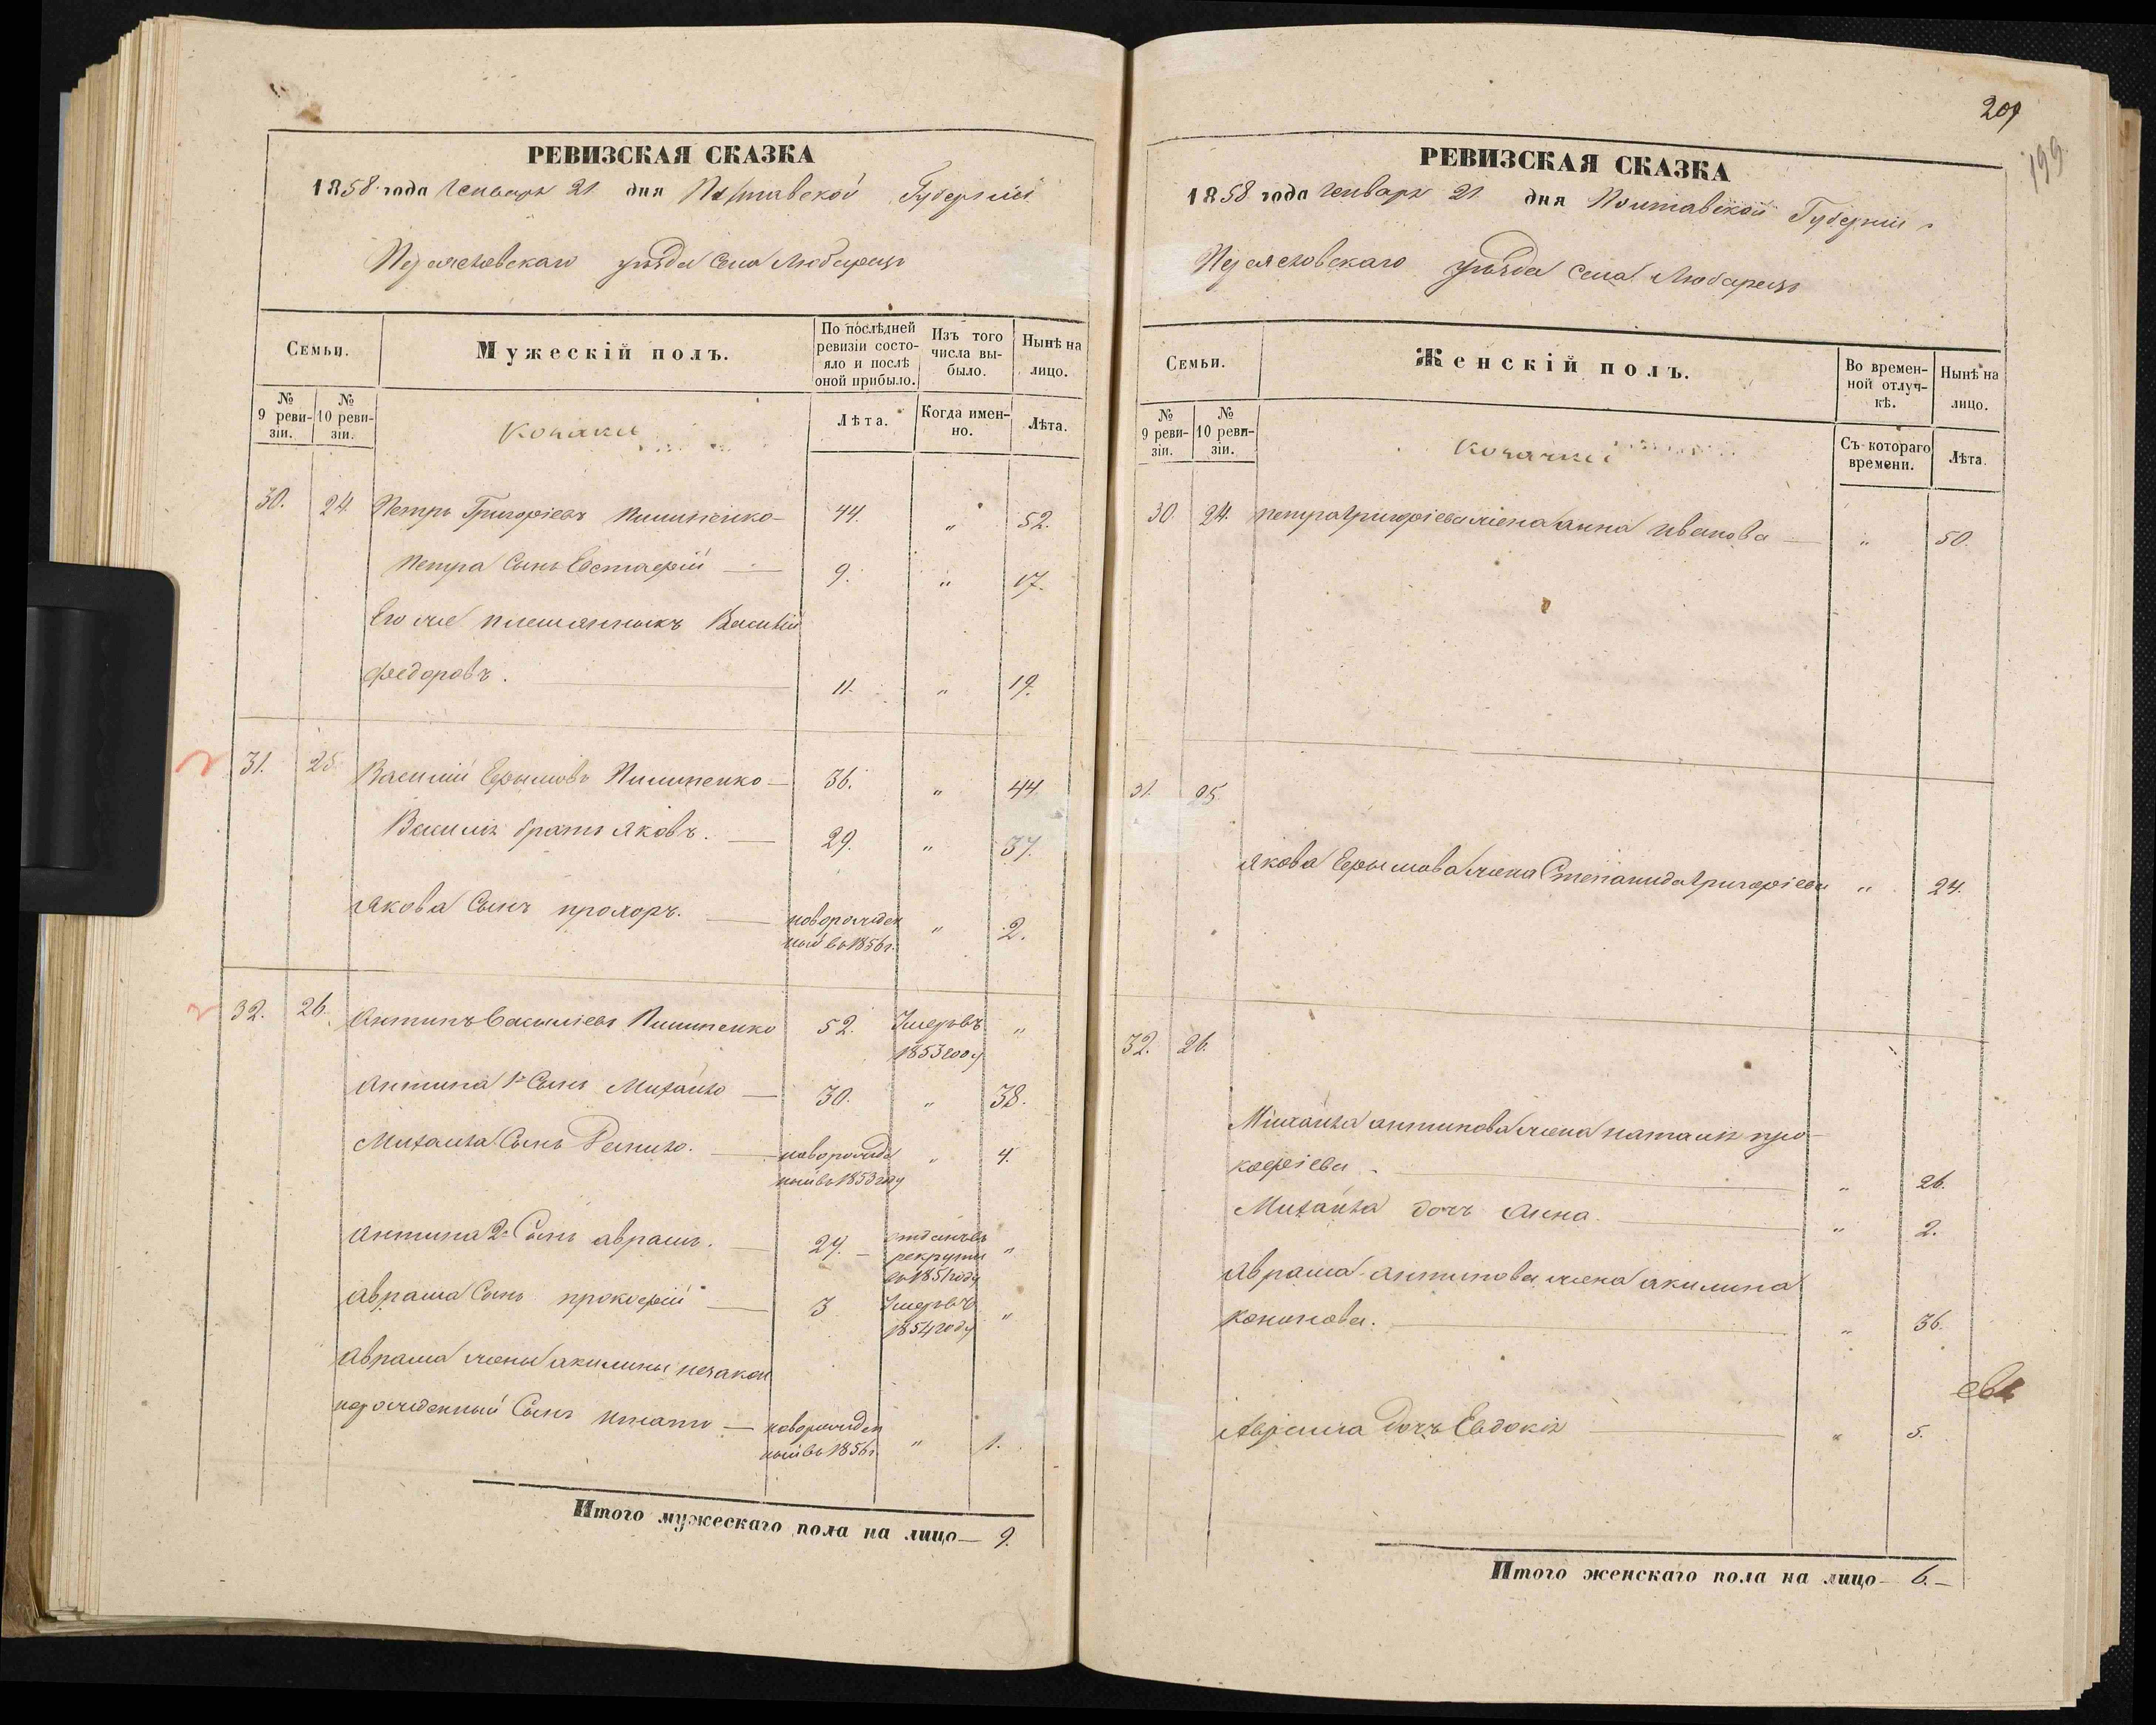 РЕВИЗСКАЯ СКАЗКА
1858 года Генваря 21 дня Полтавской Губернии
Переяславскаго уѣзда села Любарецъ
Семьи.
Мужескій полъ.
По послѣдней ревизіи состояло и послѣ оной прибыло.
Изъ того числа выбыло.
Нынѣ на лицо.
№ 9 ревизіи.
№ 10 ревизіи.
Козаки
Лѣта.
Когда именно.
Лѣта.
30. 24. Петръ Григоріевъ Пилипенко — 44. " 52.
Петра Сынъ Евстафій — 9. " 17.
Его же племянныкъ Василій
Федоровъ. — 11. " 19.
31. 25. Василій Ефымовъ Пилипенко — 36. " 44.
Василія братъ Яковъ. — 29. " 37.
Якова Сынъ прохоръ. — новорожден
ный въ 1856 г. " 2.
32. 26. Антипъ Васыліевъ Пилипенко 52. Умеръ въ "
1853 году
Антипа 1й Сынъ Михайло — 30. " 38.
Михайла Сынъ — новорожде
ный въ 1853 году " 4.
Антипа 2й Сынъ аврамъ. — 29. — отданъ въ "
рекруты
въ 1851 году
аврама Сынъ прокофій — 3 Умеръ въ "
1854 году
аврама жены акилины незакон
норожденный Сынъ Игнатъ — новорожден
ный въ 1856 г. " 1.
Итого мужескаго пола на лицо — 9.
209
199
РЕВИЗСКАЯ СКАЗКА
1858 года Генваря 21 дня Полтавской Губерніи
Переяславскаго уѣзда села Любарецъ
Семьи.
Женскій полъ.
Во временной отлучкѣ.
Нынѣ на лицо.
№ 9 ревизіи.
№ 10 ревизіи.
Козачки
Съ котораго времени.
Лѣта.
30. 24. петра григоріева жена анна иванова — " 50.
31. 25.
якова Ефымова жена Степанида григоріева " 24.
32. 26.
Михайла антипова жена наталія про-
кофіева — " 26.
Михайла дочъ Анна. — " 2.
аврама антипова жена акилина
кононова. — " 36.
Аврама дочъ Евдокія — " 5.
Итого женскаго пола на лицо — 6. —